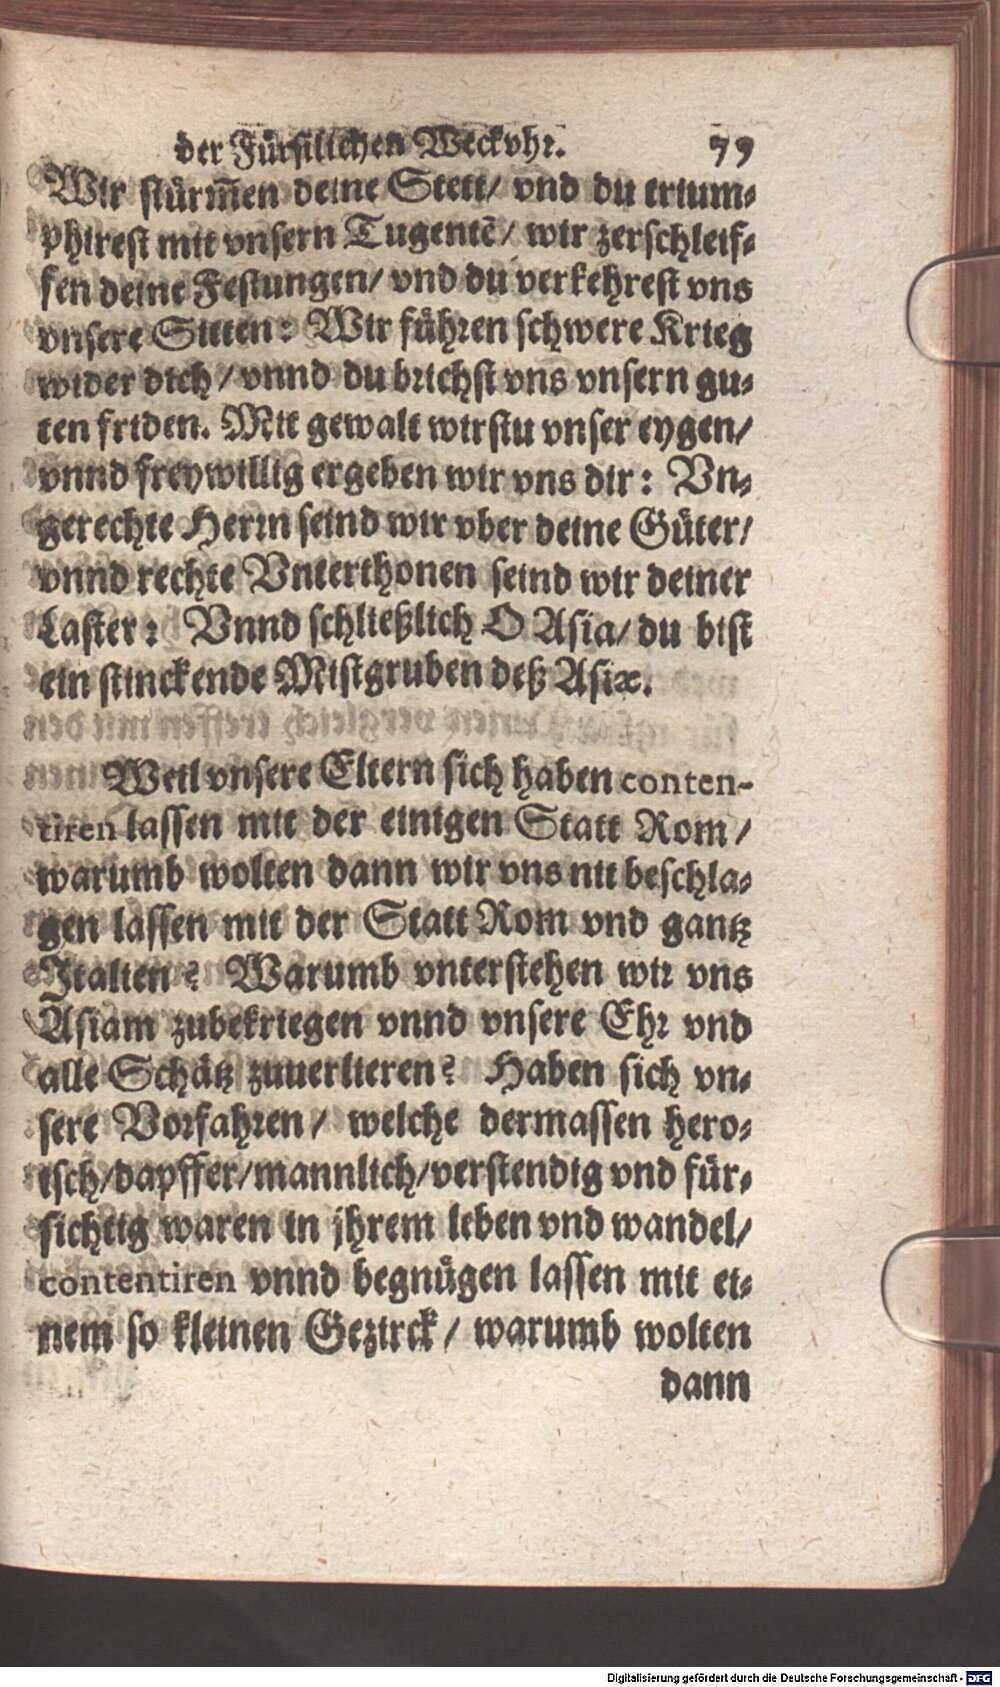 der Fürstlichen Weckvhr. 79
Wir stürm̃en deine Stett/ vnd du trium-
phirest mit vnsern Tugentẽ/ wir zerschleif-
fen deine Festungen/ vnd du verkehrest vns
vnsere Sitten: Wir führen schwere Krieg
wider dich/ vnnd du brichst vns vnsern gu-
ten friden. Mit gewalt wirstu vnser eygen/
vnnd freywillig ergeben wir vns dir: Vn-
gerechte Herrn seind wir vber deine Güter/
vnnd rechte Vnterthonen seind wir deiner
Laster: Vnnd schließlich O Asia/ du bist
ein stinckende Mistgruben deß Asiæ.
Weil vnsere Eltern sich haben conten-
tiren lassen mit der einigen Statt Rom/
warumb wolten dann wir vns nit beschla-
gen lassen mit der Statt Rom vnd gantz
Italien? Warumb vnterstehen wir vns
Asiam zubekriegen vnnd vnsere Ehr vnd
alle Schätz zuuerlieren? Haben sich vn-
sere Vorfahren/ welche dermassen hero-
isch/dapffer/mannlich/verstendig vnd für-
sichtig waren in jhrem leben vnd wandel/
contentiren vnnd begnügen lassen mit ei-
nem so kleinen Gezirck/ warumb wolten
dann
Digitalisierung gefördert durch die Deutsche Forschungsgemeinschaft - DFG